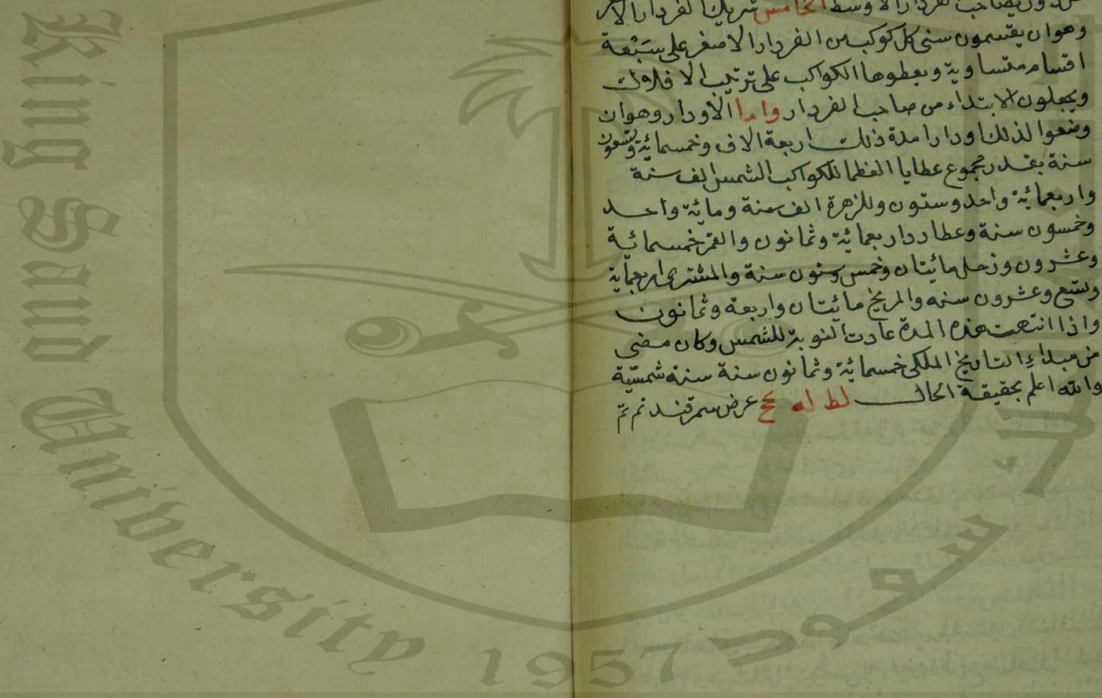 يصاحب الفردار الاوسط الخامس شريك الفردار الا
وهو ان يقسمون سنى كل كوكب من الفردار الاصغر على سبعة
اقسام متساوية ويعطوها الكواكب على ترتيب الافلاك
ويجعلون الابتداء من صاحب الفردار واما الأودار وهو ان
وضعوا لذلك اودارا مدة ذلك اربعة الاف وخمسمائة وتسعون
سنة بقدر مجموع عطايا العظما للكواكب الشمس الف سنة
واربعمائة واحد وستون وللزهرة الف سنة ومائة واحد
وخمسون سنة وعطارد اربعمائة وثمانون والقمر خمسمائة
وعشرون وزحل مائيتان وخمس وستون سنة والمشترى اربعمائة
وتسع وعشرون سنه والمريخ مائيتان واربعة وثمانون
واذا انتهت هذه المدة عادت النوبة للشمس وكان مضى
من مبداء التاريخ الملكى خمسمائة وثمانون سنة سنة شمسية
والله اعلم بحقيقة الحال لط له عرض سمرقند تم تم
King Saud University
1957
سعود